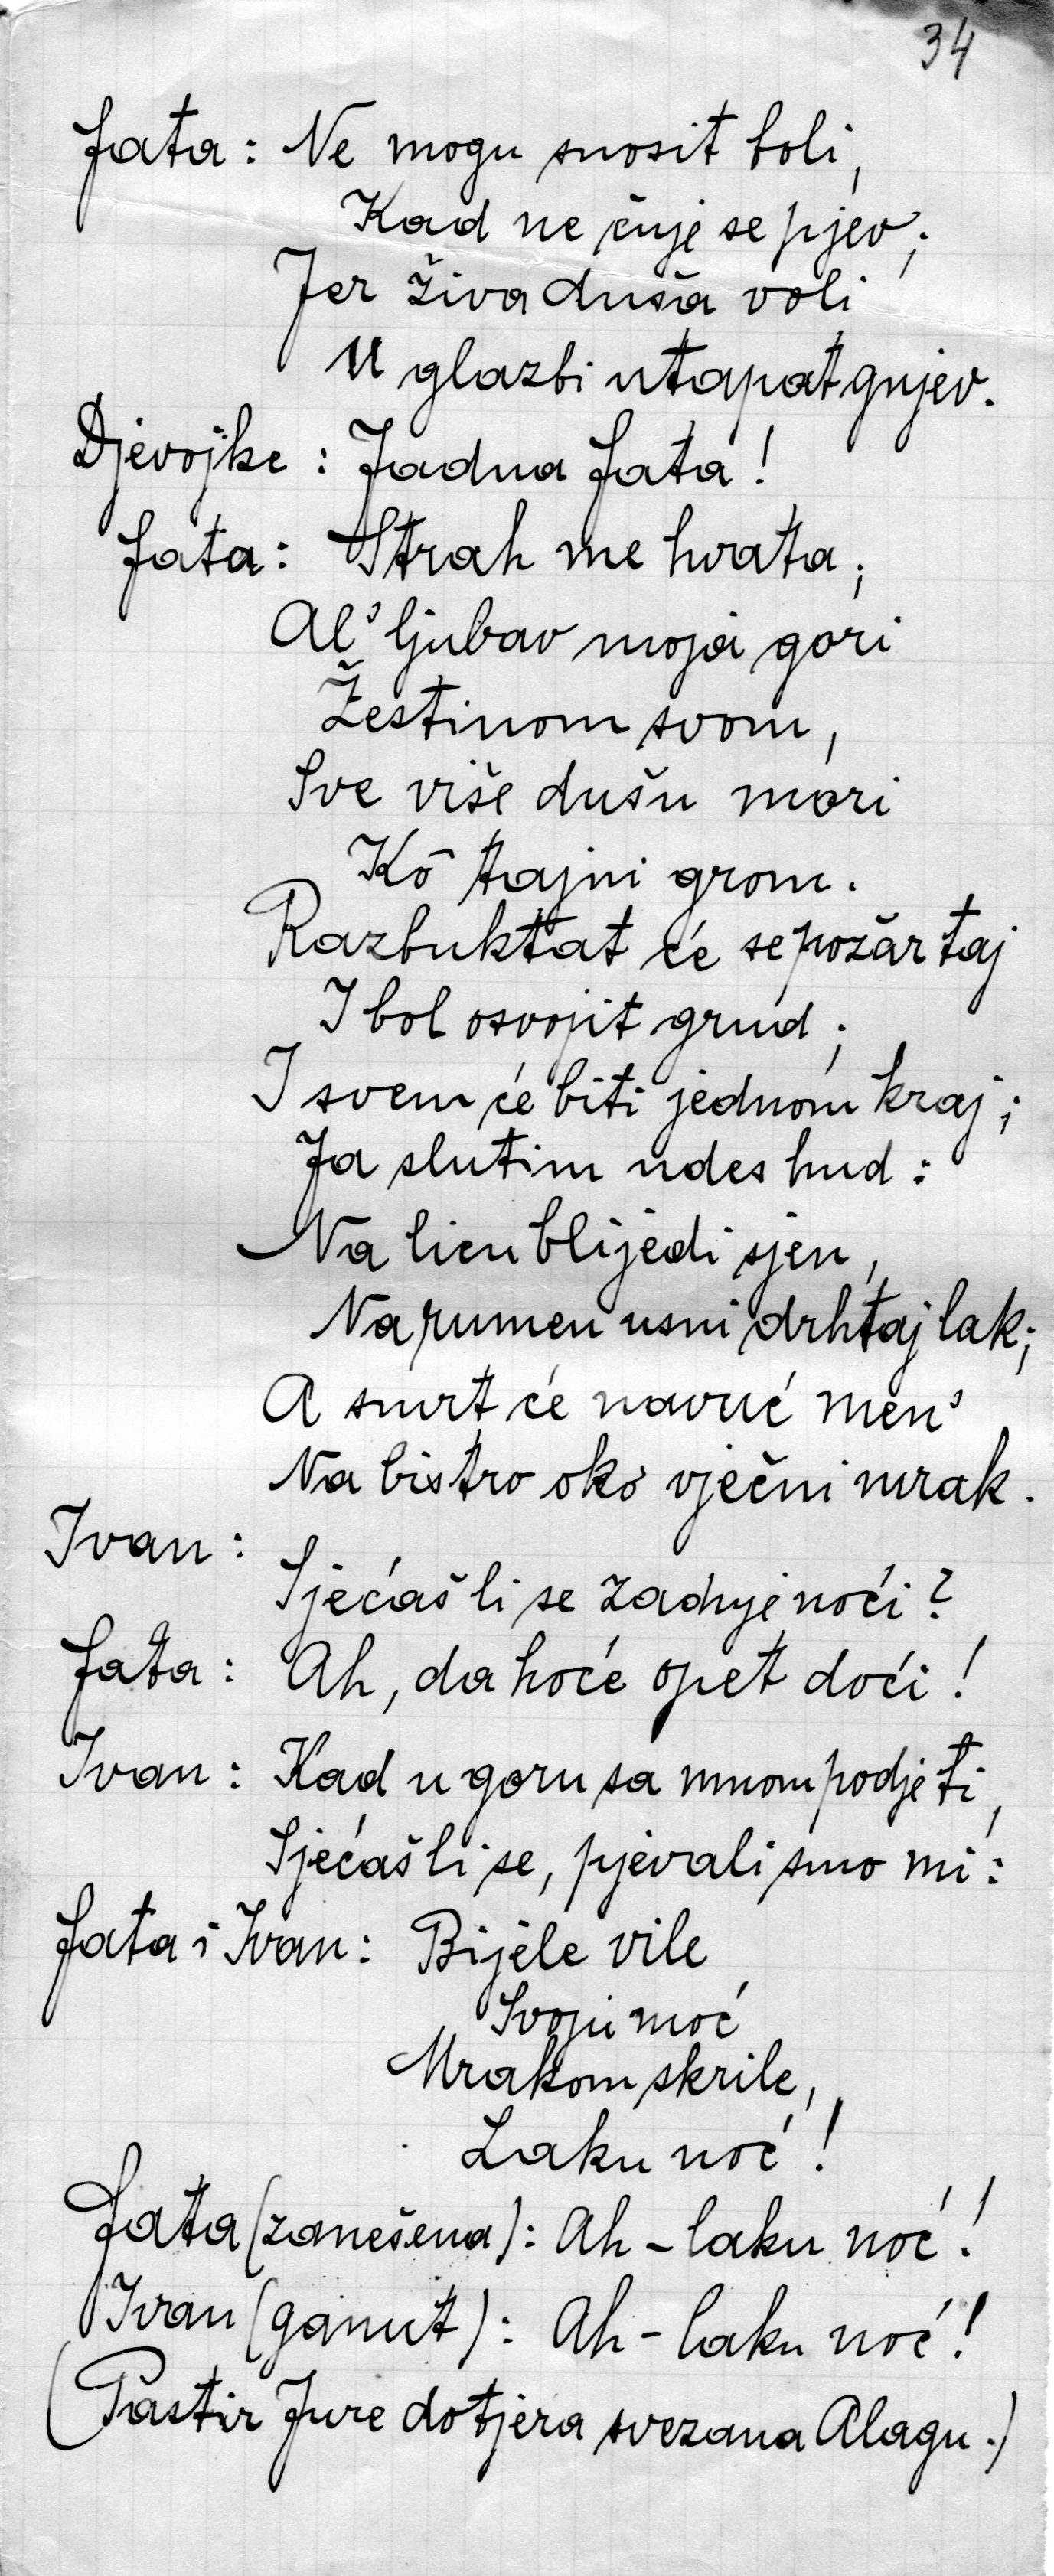 34
Fata: Ne mogu snosit boli,
Kad ne čuje se pjev;
Jer živa duša voli
U glazbi utapat gnjev.
Djevojke: Jadna Fata!
Fata: Strah me hvata;
Al' ljubav moja gori
Žestinom svom,
Sve više dušu mori
Kō tajni grom.
Razbuktat će se požar taj
I bol osvojit grud;
I svem će biti jednom kraj;
Ja slutim udes hud:
Na licu blijedi sjen,
Na rumen usni drhtaj lak;
A smrt će navuć men'
Na bistro oko vječni mrak.
Ivan:
Sjećaš li se zadnje noći?
Fata: Ah, da hoće opet doći!
Ivan: Kad u goru sa mnom podje ti,
Sjećaš li se, pjevali smo mi:
Fata i Ivan: Bijele vile
Svoju moć
Mrakom skrile,
Laku noć!
Fata (zanešena): Ah – laku noć!
Ivan (ganut): Ah – laku noć!
(Pastir Jure dotjera svezana Alagu.)